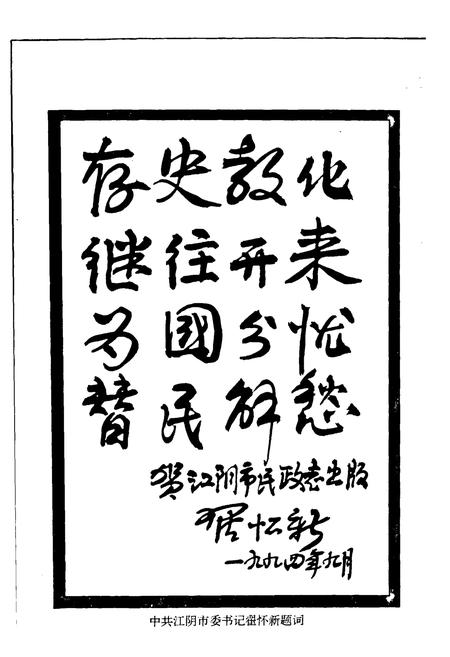 存史教化
继往开来
为国分忧
替民解愁
贺江阴市民政志出版
翟怀新
一九九四年九月
中共江阴市委书记翟怀新题词